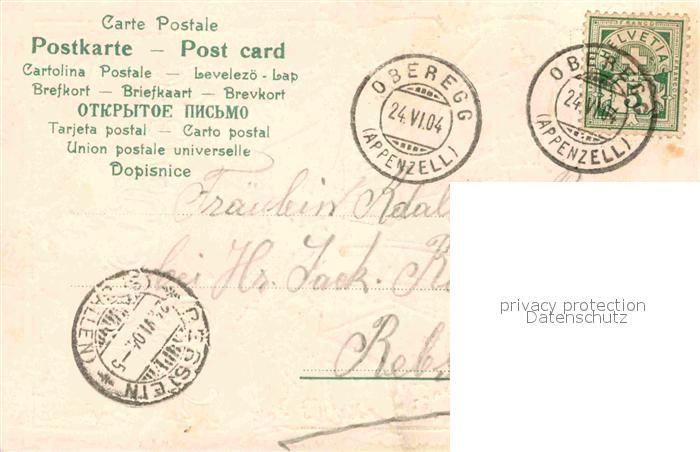 Carte Postale
Postkarte — Post card
Cartolina Postale — Levelező - Lap
Brefkort — Briefkaart — Brevkort
ОТКРЫТОЕ ПИСЬМО
Tarjeta postal — Carto postal
Union postale universelle
Dopisnice
OBEREGG
24.VI.04
(APPENZELL)
OBEREGG
24.VI.04
(APPENZELL)
FRANCO
HELVETIA
5
Fräulein
bei Hr. Jack.
Reb
REBSTEIN
(ST. GALLEN)
privacy protection
Datenschutz